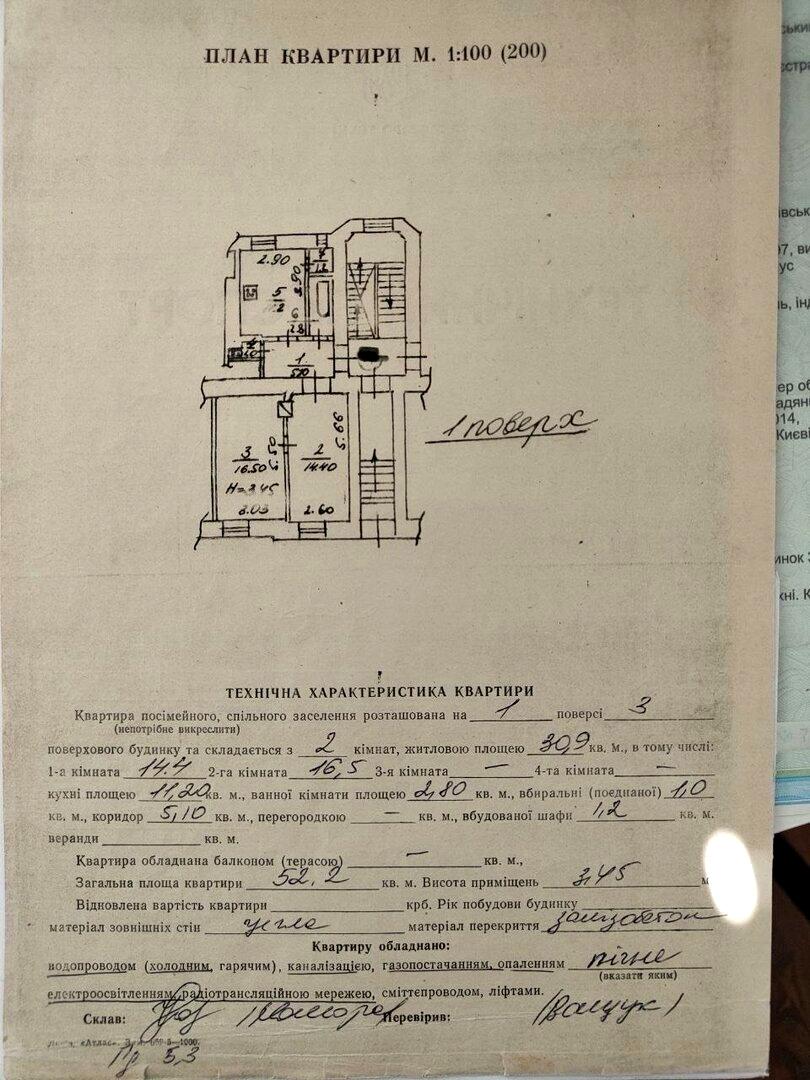 ПЛАН КВАРТИРИ М. 1:100 (200)
2.90
3.90
5
6
2.8
1
5,10
1 поверх
5.99
3
16.50
2
14.40
H=3.45
3.03
2.60
ТЕХНІЧНА ХАРАКТЕРИСТИКА КВАРТИРИ
Квартира посімейного, спільного заселення розташована на 1 поверсі 3
(непотрібне викреслити)
поверхового будинку та складається з 2 кімнат, житловою площею 30,9 кв. м., в тому числі:
1-а кімната 14.4 2-га кімната 16,5 3-я кімната — 4-та кімната —
кухні площею 11,20 кв. м., ванної кімнати площею 2,80 кв. м., вбиральні (поєднаної) 1,0
кв. м., коридор 5,10 кв. м., перегородкою — кв. м., вбудованої шафи 1,2 кв. м.
веранди кв. м.
Квартира обладнана балконом (терасою) — кв. м.,
Загальна площа квартири 52,2 кв. м. Висота приміщень 3,45 м
Відновлена вартість квартири крб. Рік побудови будинку
матеріал зовнішніх стін цегла матеріал перекриття залізобетон
Квартиру обладнано:
водопроводом (холодним, гарячим), каналізацією, газопостачанням, опаленням пічне
(вказати яким)
електроосвітленням, радіотрансляційною мережею, сміттєпроводом, ліфтами.
Склав: Перевірив: (Ващук)
«Атлас».
5,3